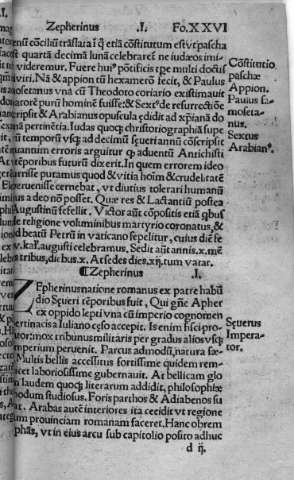 Zepherinus .I. Fo.XXVI
cõcilũ trãslata ĩ q̃ etiã cõstitutum est vt pascha
quarta decimã lunã celebrares ne iudæos imi
videremur. Fuere huiꝰ põtificis tpe multi docti
viri. Nã & appion tũ hexamerõ fecit, & Paulus
samosetanus vna cũ Theodoto coriario existimauit
purũ hominẽ fuisse: & Sextꝰ de resurrectiõe
scripsit & Arabianus opuscula ędidit ad xp̃ianã do
pertinẽtia. Iudas quoq; christoriographiã supe
tẽporũ vsq; ad decimũ seueri annũ cõscripsit
tantum erroris arguitur q̃ aduentũ Antichristi
tẽporibus futurũ dixerit. In quem errorem ideo
puto quod & vitia hoĩm & crudelitatẽ
cernebat, vt diutius tolerari humanũ
a deo nõ posset. Quæ res & Lactantiũ postea
Augustinũ fefellit. Victor aũt cõpositis etiã qbus
religione voluminibus martyrio coronatus, &
beatũ Petrũ in vaticano sepelitur, cuius diẽ fe
v. kal. augusti celebramus. Sedit aũt annis.x.mẽ
tribus, dibus.x. At sedes dies.xij. tum vatat.
¶Zepherinus .I.
Zepherinus natione romanus ex patre habũ
dio Seueri tẽporibus fuit, Qui gñe Apher
ex oppido lepti vna cũ imperio cognomen
pertinacis a Iuliano cęso accepit. Is enim fisci pro
mox tribunus militaris per gradus alios vsq;
imperium peruenit. Parcus admodũ, natura sæ
Multis bellis accessitus fortissime quidem rem
laboriosissime gubernauit. At bellicam glo
laudem quoq; literarum addidit, philosophiæ
studiosus. Foris parthos & Adiabenos su
Arabas autẽ interiores ita cecidit vt regione
prouinciam romanam faceret. Hanc obrem
phas, vt in eius arcu sub capitolio posito adhuc
d ij.
Cõstitutio
paschæ
Appion.
Paulus sa-
moseta-
nus.
Sextus
Arabianꝰ.
Seuerus
Impera-
tor.